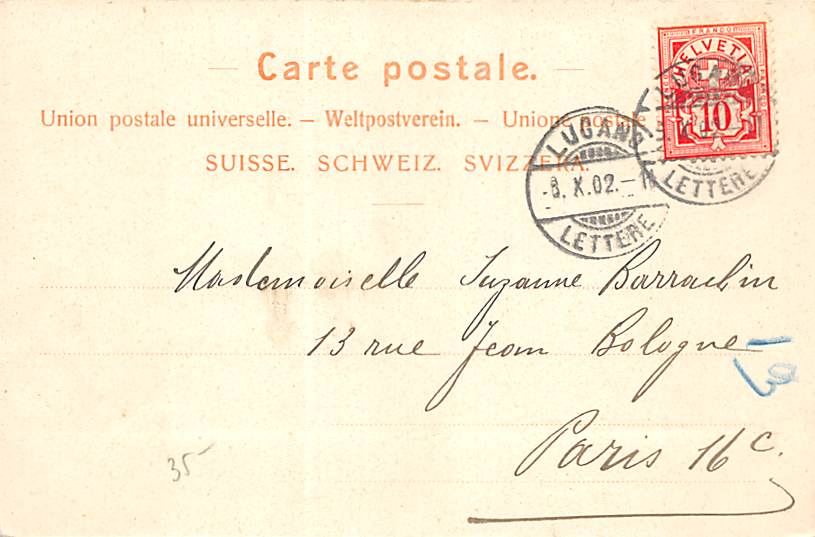 FRANCO
HELVETIA
10
Carte postale.
Union postale universelle. — Weltpostverein. — Unione postale
SUISSE. SCHWEIZ. SVIZZERA.
LUGANO
X.02.
LETTERE
LETTERE
Mademoiselle Suzanne Barrachin
13 rue Jean Bologne
19
Paris 16e.
35